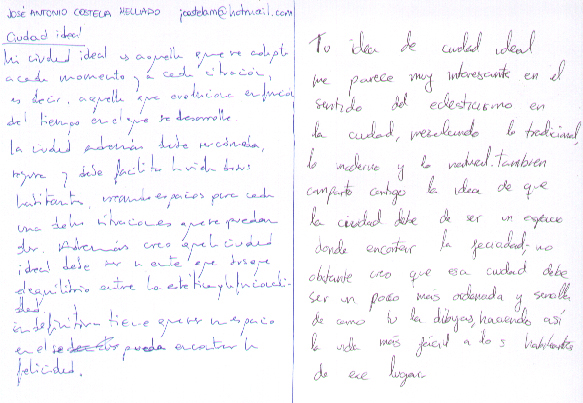 JOSÉ ANTONIO COSTELA MELLADO jcostelam@hotmail.com
Ciudad ideal
Mi ciudad ideal es aquella que se adapte
a cada momento y a cada situación,
es decir, aquella que evoluciona en función
del tiempo en el que se desarrolle.
La ciudad además debe ser cómoda,
segura y debe facilitar la vida de sus
habitantes, creando espacios para cada
una de las situaciones que se puedan
dar. Además creo que la ciudad
ideal debe ser un ente que busque
el equilibrio entre la estética y la funcionali-
dad.
En definitiva tiene que ser un espacio
en el que se pueda encontrar la
felicidad.
Tu idea de ciudad ideal
me parece muy interesante en el
sentido del eclecticismo en
la ciudad, mezclando lo tradicional,
lo moderno y lo natural. También
comparto contigo la idea de que
la ciudad debe de ser un espacio
donde encontrar la felicidad, no
obstante creo que esa ciudad debe
ser un poco más ordenada y sencilla
de como tu la dibujas, haciendo así
la vida más fácil a los habitantes
de ese lugar